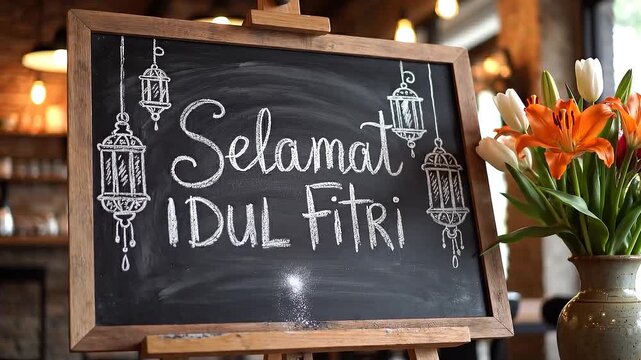 Selamat
IDUL FitRi